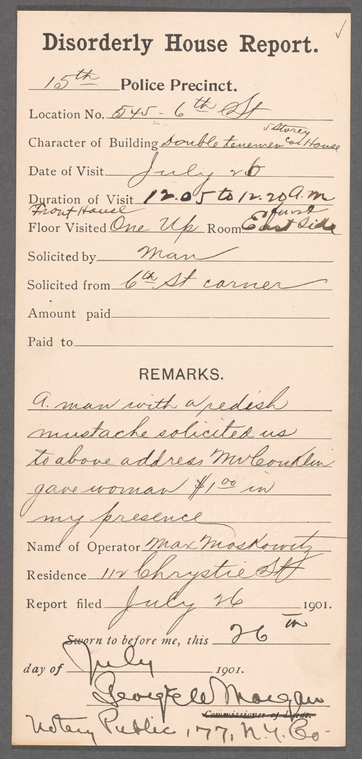 Disorderly House Report.
15th Police Precinct.
Location No. 545 - 6th St
5 Storey
Character of Building Double tenemen House
Date of Visit July 26
Duration of Visit 12.05 to 12.20 A.M
Front House
Floor Visited One Up Room East Side
Solicited by Man
Solicited from 6th St corner
Amount paid
Paid to
REMARKS.
A. man with a redish
mustache solicited us
to above address Mr Conklin
gave woman $1.00 in
my presence
Name of Operator Max Moskowitz
Residence 112 Chrystie St
Report filed July 26 1901.
Sworn to before me, this 26th
day of July 1901.
George W Morgan
Commissioner of Deeds.
Notary Public, 177, N.Y. Co-